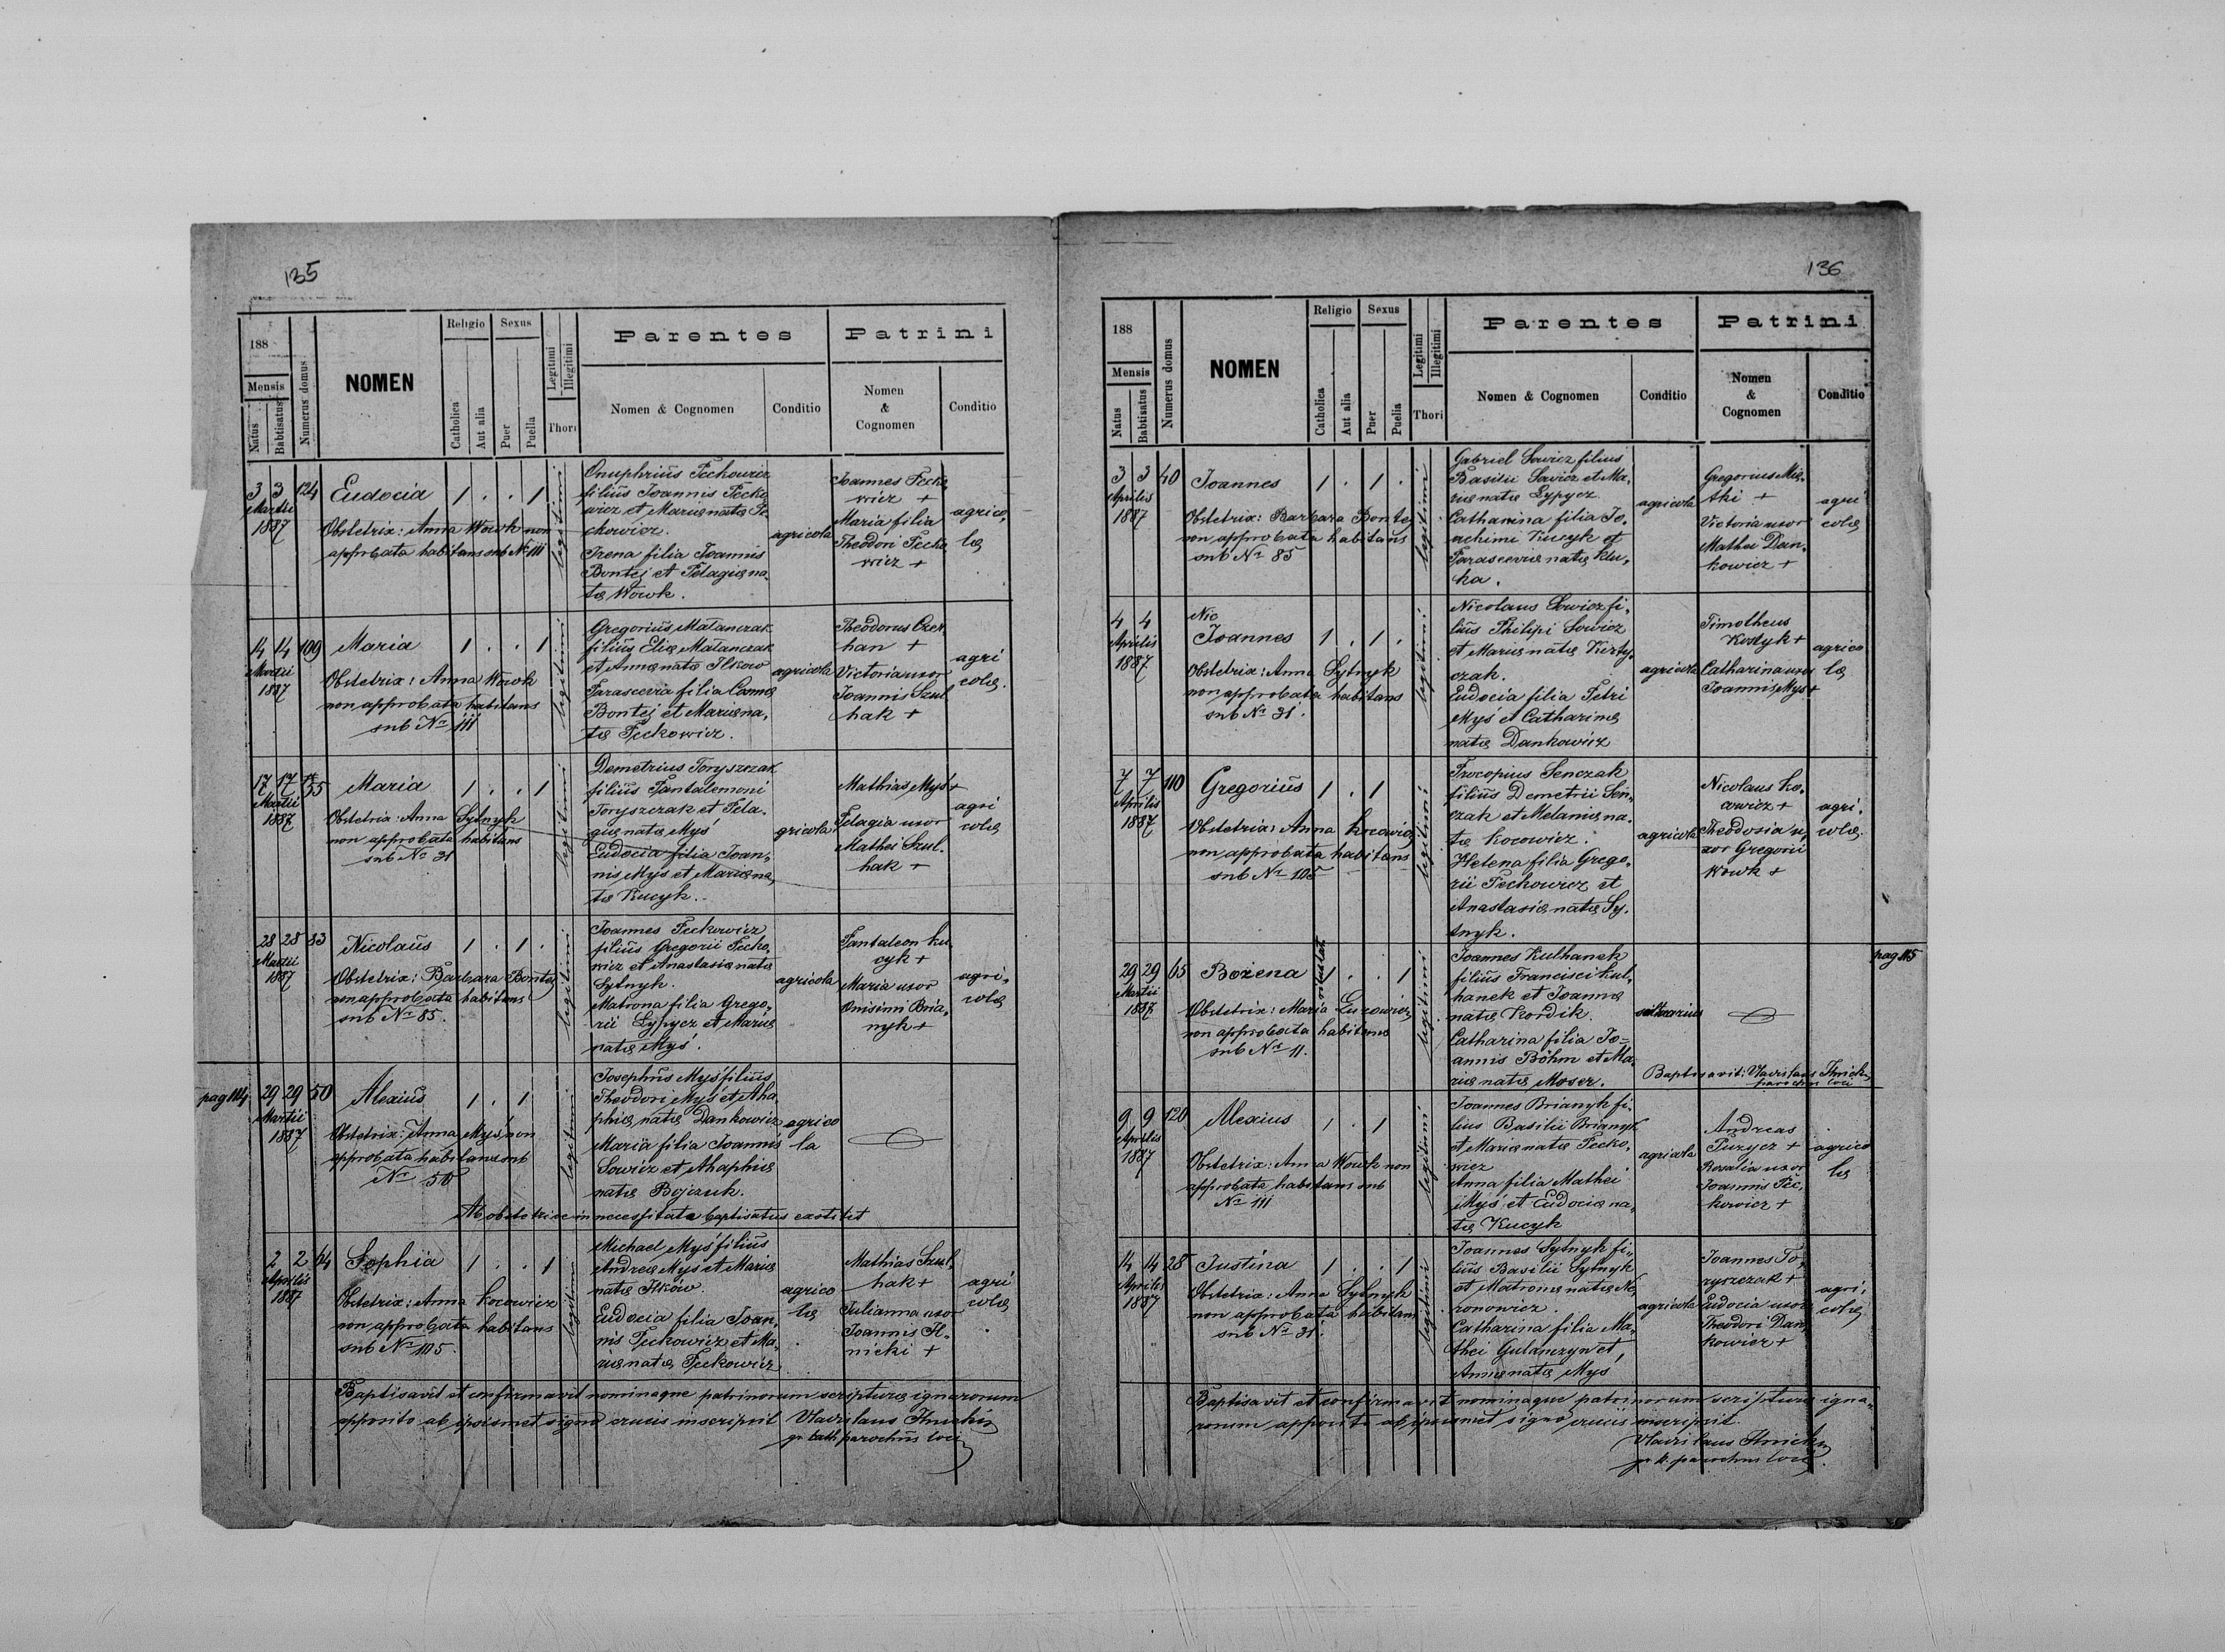 135
188
Mensis
Natus
Babtisatus
Numerus domus
NOMEN
Religio
Catholica
Aut alia
Sexus
Puer
Puella
Legitimi
Illegitimi
Thori
Parentes
Nomen & Cognomen
Conditio
Patrini
Nomen
&
Cognomen
Conditio
3 3 124 Eudocia 1 . . 1
Martii
1887
Obstetrix: Anna Wowk non
approbata habitans sub Nr 111
legitimi
Onuphrius Feckowicz
filius Joannis Fecko
wicz et Mariæ natæ Fe
ckowicz.
Irena filia Joannis
Bontej et Pelagiæ na
tæ Wowk.
agricola
Joannes Fecko
wicz +
Maria filia
Theodori Fecko
wicz +
agrico,
læ
14 14 109 Maria 1 . . 1
Martii
1887
Obstetrix: Anna Wowk
non approbata habitans
sub Nr 111
legitimi
Gregorius Matanczak
filius Eliæ Matanczak
et Annæ natæ Ilkow
Parascevia filia Cosmæ
Bontej et Mariæ na,
tæ Feckowicz.
agricola
Theodorus Czer
han +
Victoria uxor
Joannis Szul
hak +
agri
colæ.
17 17 55 Maria 1 . . 1
Martii
1887
Obstetrix: Anna Sytnyk
non approbata habitans
sub Nr 31
legitimi
Demetrius Toryszczak
filius Pantalemoni
Toryszczak et Pela
giæ natæ Myś
Eudocia filia Joan,
nis Myś et Mariæ na,
tæ Kucyk.
gricola
Mathias Myś +
Pelagia uxor
Mathei Szul.
hak +
agri
colæ
28 28 83 Nicolaus 1 . 1 .
Martii
1887
Obstetrix: Barbara Bontej
non approbata habitans
sub Nr 85.
legitimi
Joannes Feckowicz
filius Gregorii Fecko,
wicz et Anastasiæ natæ
Sytnyk.
Matrona filia Grego,
rii Lypycz et Mariæ
natæ Myś.
agricola
Pantaleon Ku
cyk +
Maria uxor
Onisimi Bria,
nyk +
agri,
colæ
pag 114 29 29 50 Alexius 1 . 1
Martii
1887
Obstetrix: Anna Myś non
approbata habitans sub
Nr 50
legitimi
Josephus Myś filius
Theodori Myś et Aha
phiæ natæ Dankowicz
Maria filia Joannis
Sowicz et Ahaphiæ
natæ Bojczuk.
agrico
la
Ab obstetrice in necessitate baptisatus exstitit
2 2 64 Sophia 1 . . 1
Aprilis
1887
Obstetrix: Anna Kocowicz
non approbata habitans
sub Nr 105.
legitimi
Michael Myś filius
Andreæ Myś et Mariæ
natæ Ilków.
Eudocia filia Joan,
nis Feckowicz et Ma,
riæ natæ Feckowicz
agrico
la
Mathias Szul,
hak +
Julianna uxor
Joannis Il,
nicki +
agri
colæ
Baptisavit et confirmavit nominaque patrinorum scripturæ ignarorum
apposito ab ipsismet signo crucis inscripsit Vladislaus
gr cath parochus loci
136
188
Mensis
Natus
Babtisatus
Numerus domus
NOMEN
Religio
Catholica
Aut alia
Sexus
Puer
Puella
Legitimi
Illegitimi
Thori
Parentes
Nomen & Cognomen
Conditio
Patrini
Nomen
&
Cognomen
Conditio
3 3 40 Joannes 1 . 1 .
Aprilis
1887
Obstetrix: Barbara Bontej
non approbata habitans
sub Nr 85
legitimi
Gabriel Sowicz filius
Basilii Sowicz et Ma,
riæ natæ Lypycz.
Catharina filia Jo,
achimi Kucyk et
Parasceviæ natæ Klu,
ka.
agricola
Gregorius
+
Victoria uxor
Mathei Dan,
kowicz +
agri
colæ
4 4 Nic
Joannes 1 . 1 .
Aprilis
1887
Obstetrix: Anna Sytnyk
non approbata habitans
sub Nr 31.
legitimi
Nicolaus Sowicz fi,
lius Philipi Sowicz
et Mariæ natæ
czak.
Eudocia filia Petri
Myś et Catharinæ
natæ Dankowicz
agricola
Timotheus
+
Catharina uxor
Joannis Myś +
agrico
læ
7 7 110 Gregorius 1 . 1
Aprilis
1887
Obstetrix: Anna Kocowicz
non approbata habitans
sub Nr 105
legitimi
Procopius Senczak
filius Demetrii Sen,
czak et Melaniæ na,
tæ Kocowicz.
Helena filia Grego,
rii Feckowicz et
Anastasiæ natæ Sy,
tnyk.
agricola
Nicolaus Ko,
cowicz +
Theodosia u,
xor Gregorii
Wowk +
agri,
colæ.
pag 115
29 29 65 Božena 1 . . 1
Martii
1887
Obstetrix: Maria
non approbata habitans
sub Nr 11.
legitimi
Joannes Kulhanek
filius Francisci Kul,
hanek et Joannæ
natæ Kordik.
Catharina filia Jo=
annis Böhm et Ma,
riæ natæ Moser.
Baptisavit: Vladislaus
parochus loci
9 9 120 Alexius 1 . 1
Aprilis
1887
Obstetrix: Anna Wowk non
approbata habitans sub
Nr 111
legitimi
Joannes Brianyk fi,
lius Basilii Brianyk
et Mariæ natæ Fecko,
wicz
Anna filia Mathei
Myś et Eudociæ na,
tæ Kucyk
agricola
Andreas
Puzycz +
Rosalia uxor
Joannis Fec,
kowicz +
agrico
læ
14 14 28 Justina 1 . . 1
Aprilis
1887
Obstetrix: Anna Sytnyk
non approbata habitans
sub Nr 31.
legitimi
Joannes Sytnyk fi,
lius Basilii Sytnyk
et Matronæ natæ
ronowicz.
Catharina filia Ma,
thei Gulanczyn et
Annæ natæ Myś
agricola
Joannes To,
ryszczak +
Eudocia uxor
Theodori Dan,
kowicz +
agri,
colæ
Baptisavit et confirmavit nominaque patrinorum scripturæ igna,
rorum apposito ab ipsismet signo crucis inscripsit.
Vladislaus
gr k. parochus loci.